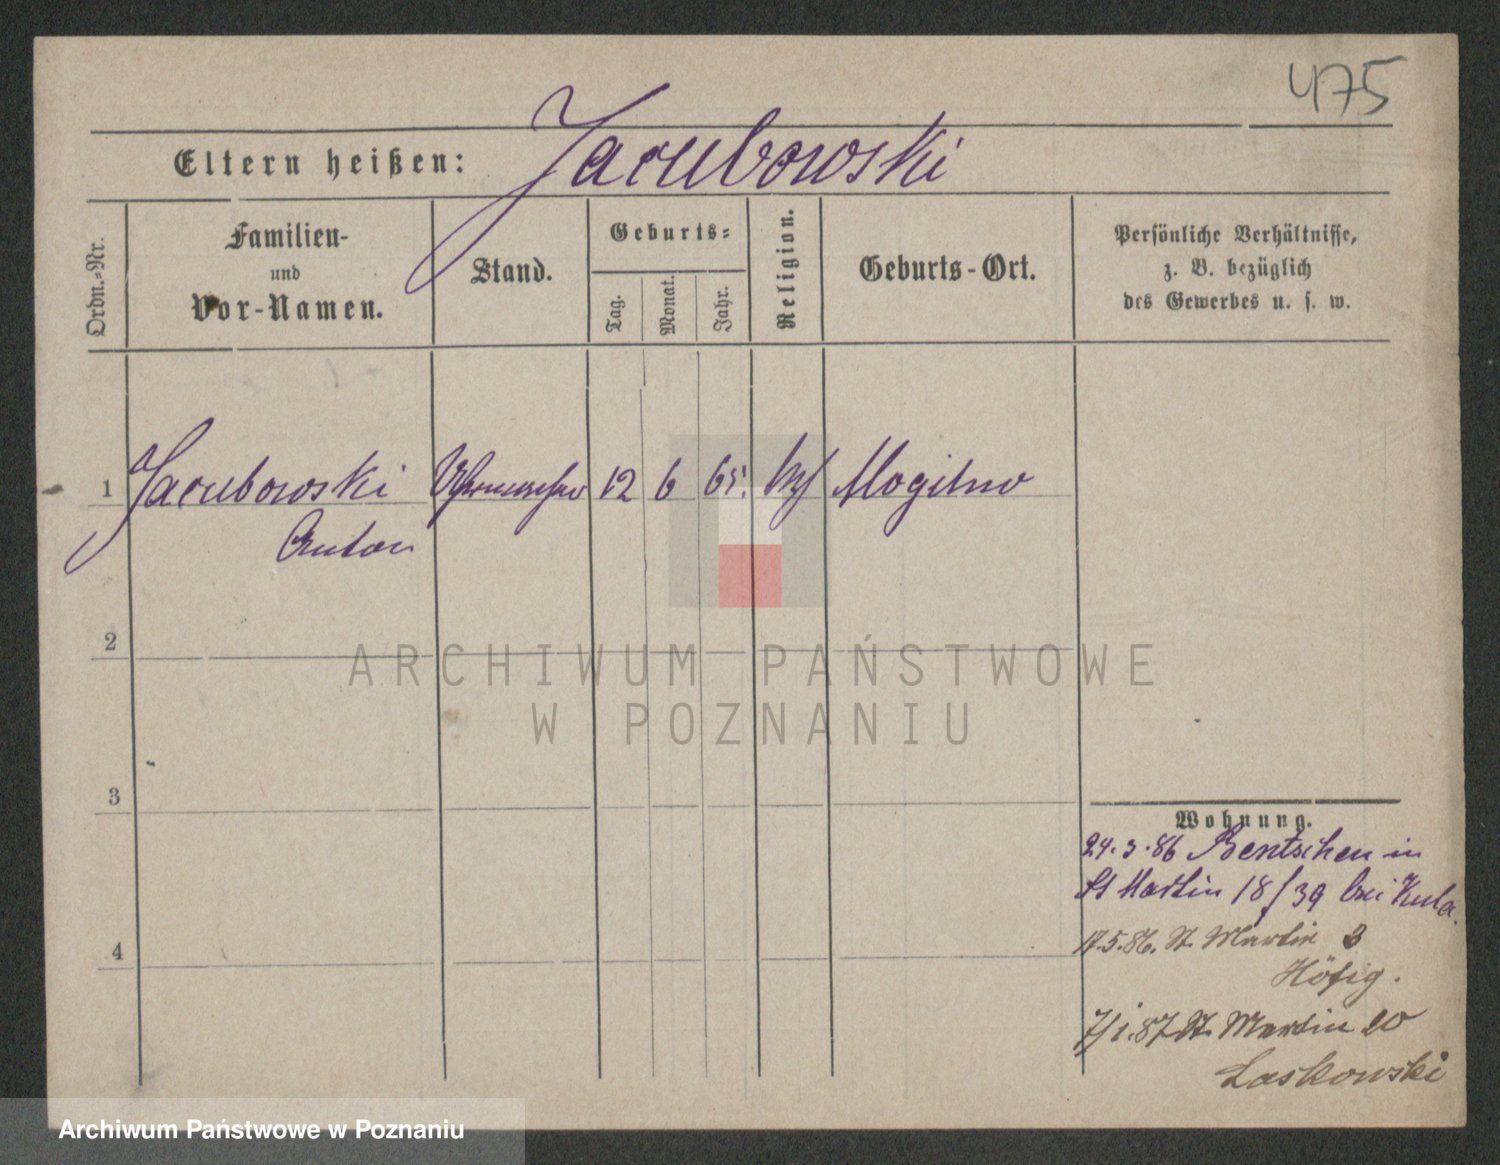 475
Eltern heißen: Jacubowski
Ordn.-Nr.
Familien-
und
Vor-Namen.
Stand.
Geburts-
Tag.
Monat.
Jahr.
Religion.
Geburts-Ort.
Persönliche Verhältnisse,
z. B. bezüglich
des Gewerbes u. s. w.
1 Jacubowski 12 6 65. Mogilno
Anton
2
ARCHIWUM PAŃSTWOWE
W POZNANIU
3
Wohnung.
24.3.86 Bentschen in
St Martin 18/39 bei Kula.
17.5.86. St. Martin 3
4
Höfig.
7/1.87 St. Martin 20
Laskowski
Archiwum Państwowe w Poznaniu